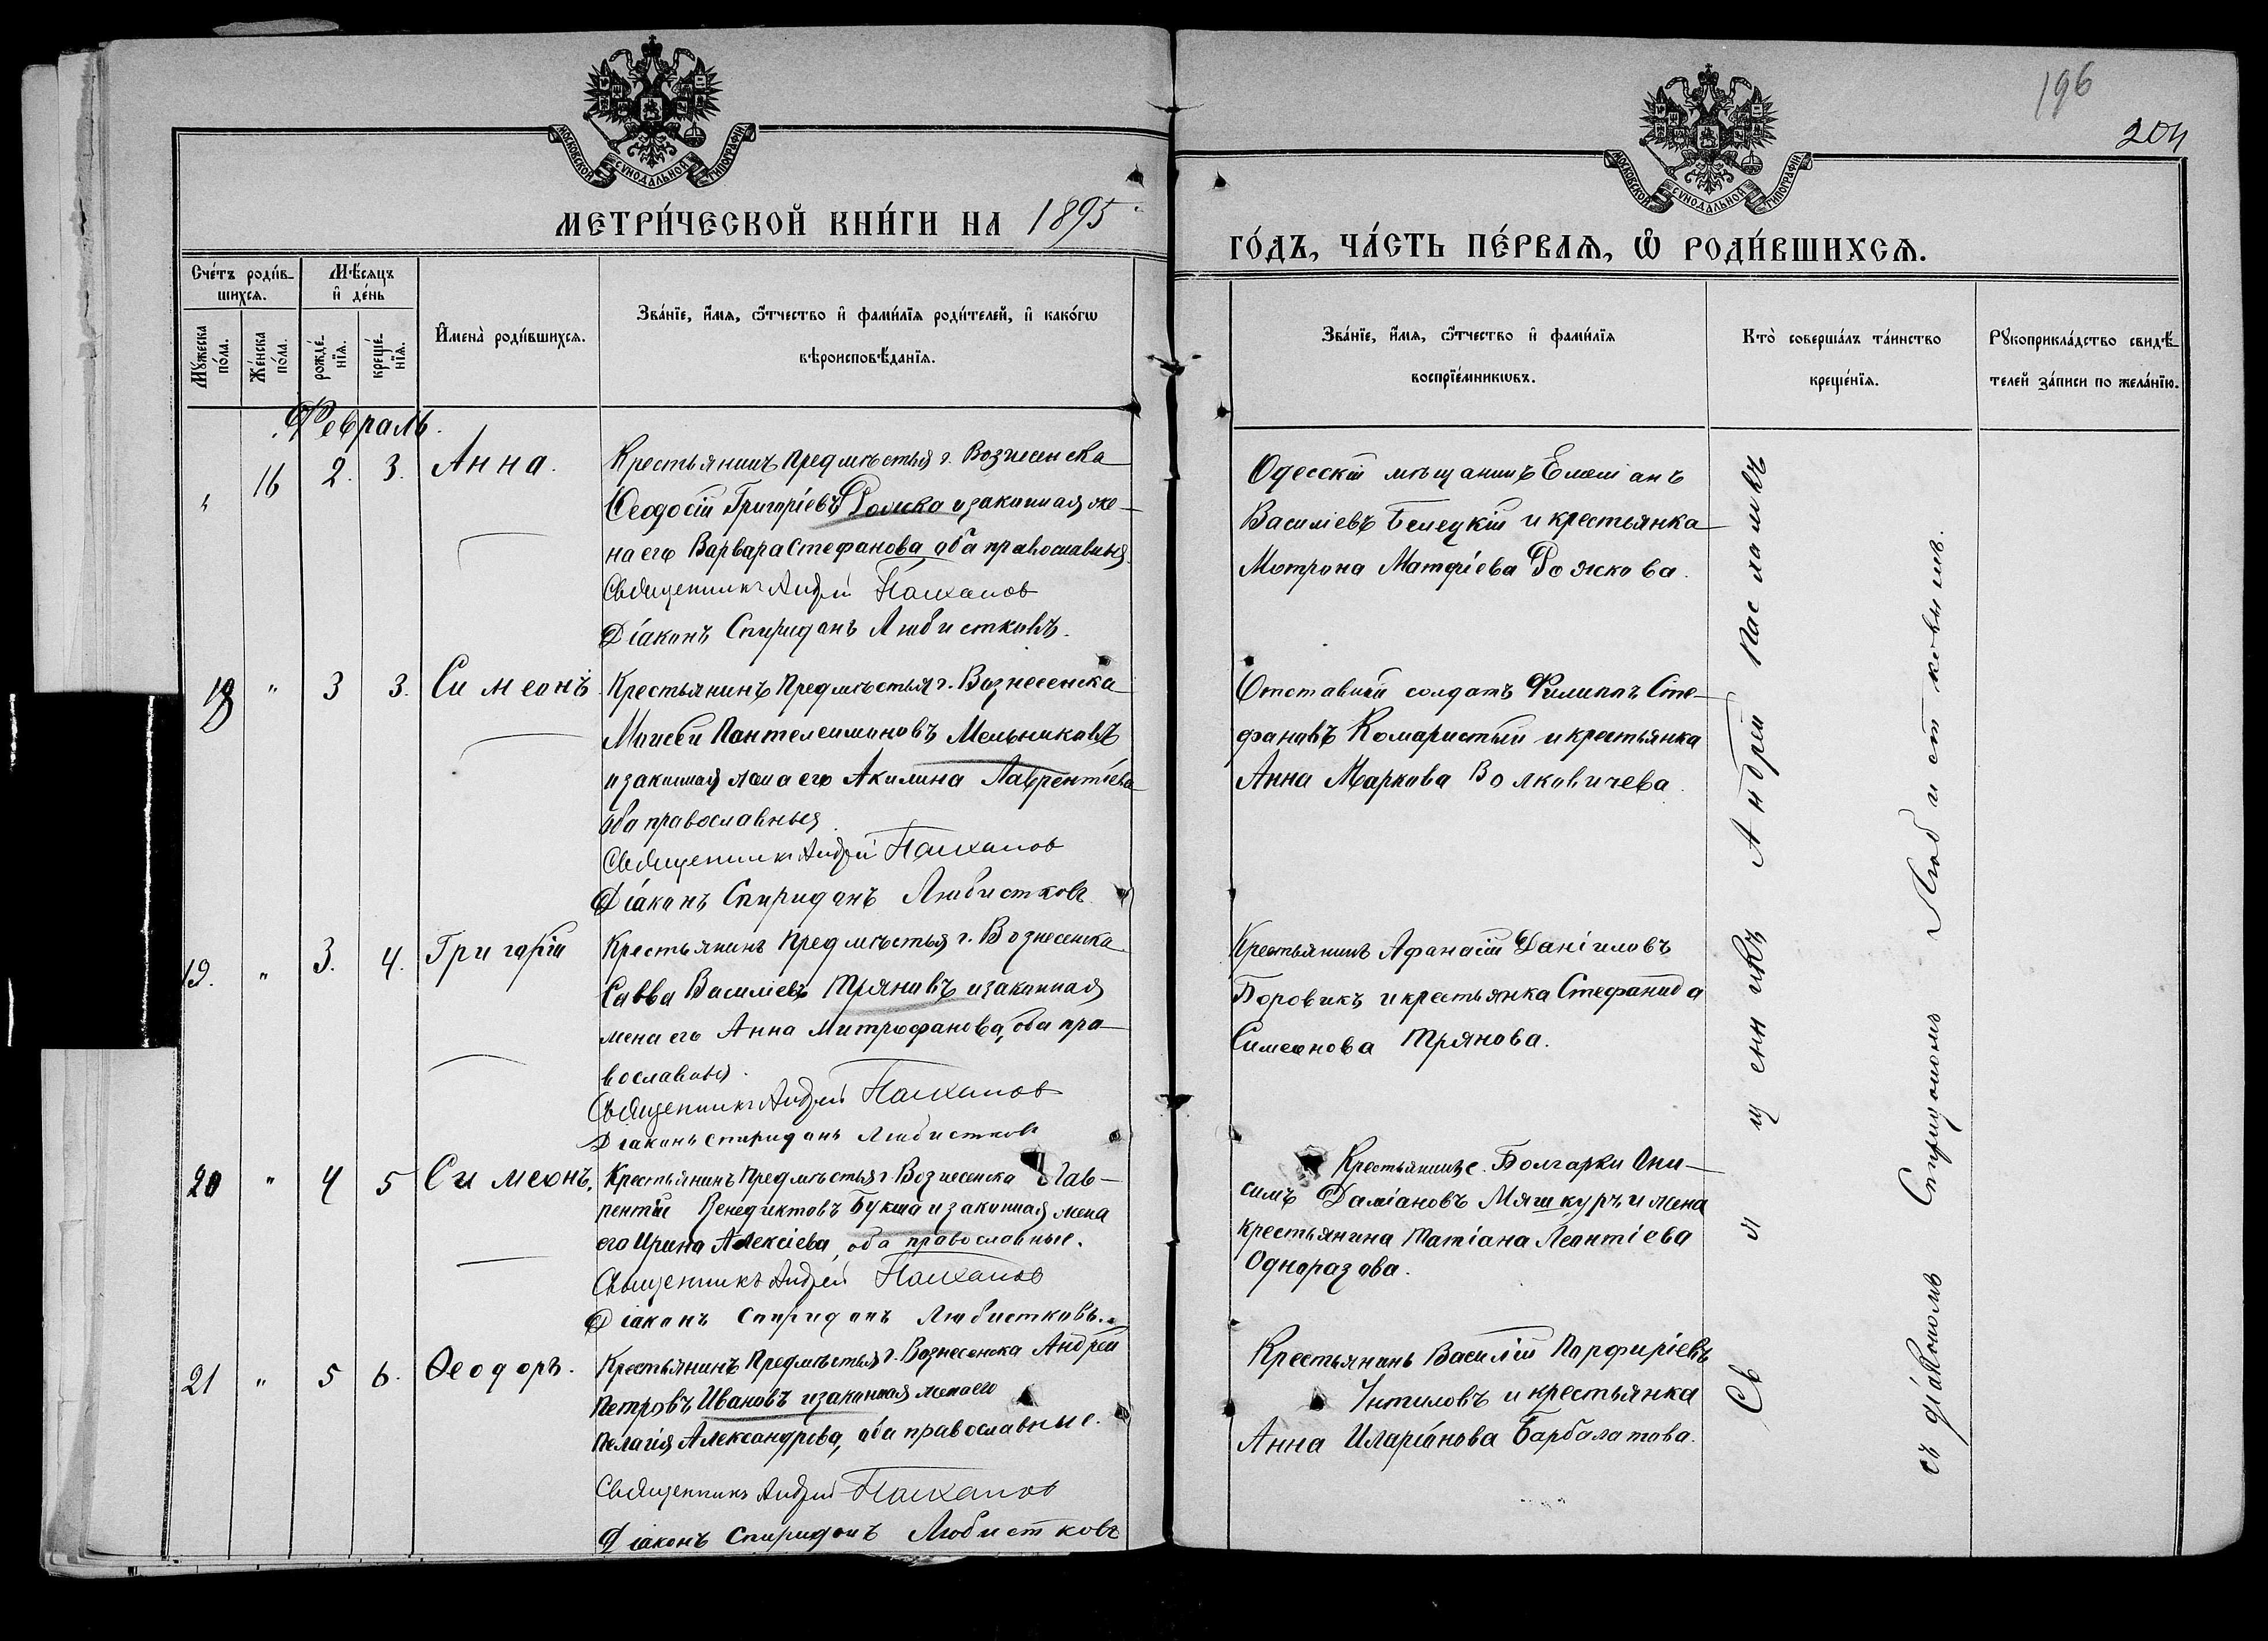 196
204
МОСКОВСКОЙ СѴНОДАЛЬНОЙ ТИПОГРАФІИ
МОСКОВСКОЙ СѴНОДАЛЬНОЙ ТИПОГРАФІИ
МЕТРИ́ЧЕСКОЙ КНИ́ГИ НА 1895
ГО́ДЪ, ЧА́СТЬ ПЕ́РВАѦ, Ѽ РОДИ́ВШИХСѦ.
Сче́тъ роди́в-
шихсѧ.
Мꙋ́жеска по́ла.
Же́нска по́ла.
Мѣ́сѧцъ
и҆ де́нь
рожде́-
нїѧ.
креще́-
нїѧ.
И҆мена̀ роди́вшихсѧ.
Зва́нїе, и҆́мѧ, ѻ҆́тчество и҆ фами́лїѧ роди́телей, и҆ како́гѡ
вѣроисповѣ́данїѧ.
Зва́нїе, и҆́мѧ, ѻ҆́тчество и҆ фами́лїѧ
воспрїе́мникѡвъ.
Кто̀ соверша́лъ та́инство
креще́нїѧ.
Рꙋкоприкла́дство свидѣ́-
телей за́писи по жела́нїю.
Февраль.
" 16 2. 3. Анна.
Крестьянинъ предмѣстья г. Вознесенска
Ѳеодосій Григоріевъ Рожко и законная же-
на его Варвара Стефанова, оба православныя.
Священникъ Андрей
Діаконъ Спиридонъ Любистковъ.
Одесскій мѣщанинъ Емеліанъ
Василіевъ Белецкій и крестьянка
Мотрона Матфіева Рожкова.
18 " 3 3. Симеонъ
Крестьянинъ предмѣстья г. Вознесенска
Моисей Пантелеимоновъ Мельниковъ
и законная жена его Акилина Лаврентіева
оба православныя.
Священникъ Андрей
Діаконъ Спиридонъ Любистковъ
Отставной солдатъ Филиппъ Сте-
фановъ Комаристый и крестьянка
Анна Маркова Волковичева.
19. " 3. 4. Григорій
Крестьянинъ предмѣстья г. Вознесенска
Савва Василіевъ Тряновъ и законная
жена его Анна Митрофанова, оба пра-
вославныя.
Священникъ Андрей
Діаконъ Спиридонъ Любистковъ
Крестьянинъ Афанасій Даніиловъ
Боровикъ и крестьянка Стефанида
Симеонова Трянова.
20 " 4 5 Симеонъ.
Крестьянинъ предмѣстья г. Вознесенска Лав-
рентій Венедиктовъ Букша и законная жена
его Ирина Алексіева, оба православные.
Священникъ Андрей
Діаконъ Спиридонъ Любистковъ.
Крестьянинъ с. Болгарки Они-
симъ Даміановъ Мяшкуръ и жена
крестьянина Татіана Леонтіева
Одноразова.
21 " 5 6. Ѳеодоръ.
Крестьянинъ предмѣстья г. Вознесенска Андрей
Петровъ Ивановъ и законная жена его
Пелагія Александрова, оба православные.
Священникъ Андрей
Діаконъ Спиридонъ Любистковъ
Крестьянинъ Василій Порфиріевъ
Интиловъ и крестьянка
Анна Иларіонова Барбалатова.
Священникъ Андрей
съ діакономъ Спиридономъ Любистковымъ.